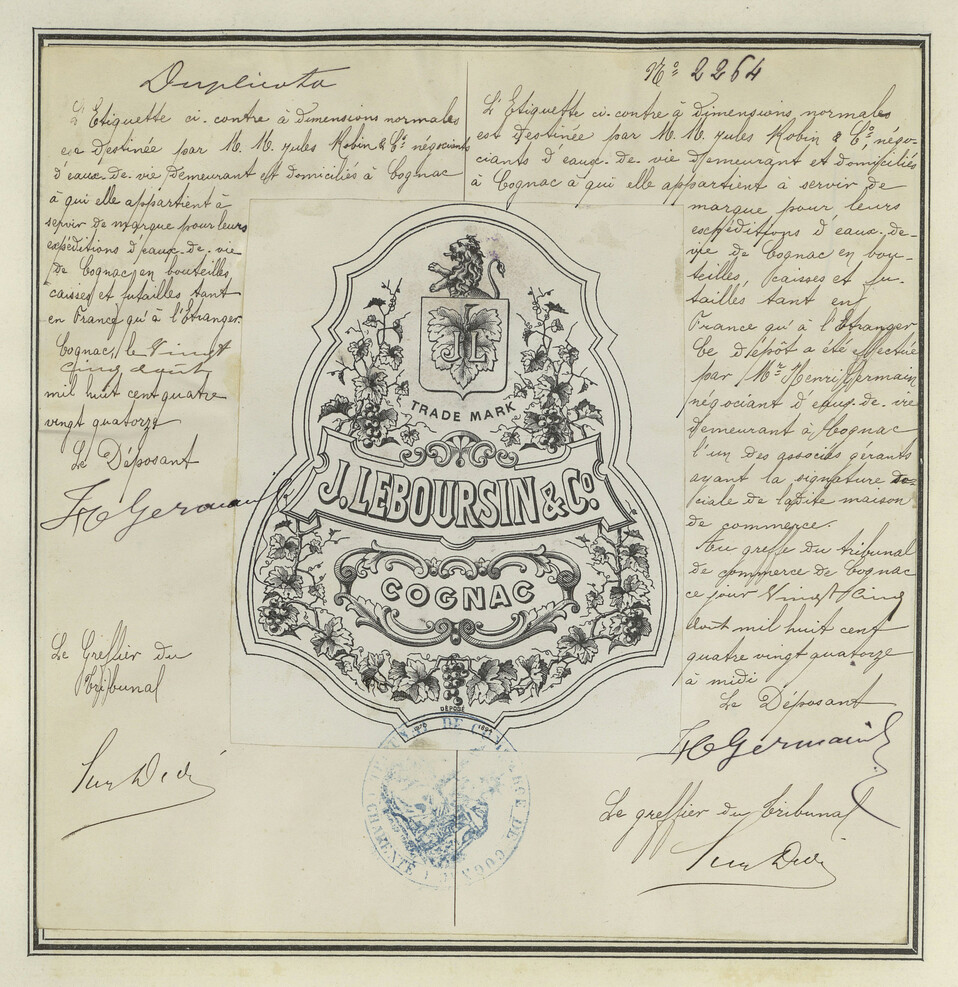 Duplicata
L'Etiquette ci-contre à dimensions normales
est destinée par M.M. Jules Robin & Cie négociants
d'eaux-de-vie demeurant et domiciliés à Cognac
à qui elle appartient à
servir de marque pour leurs
expéditions d'eaux-de-vie
de Cognac, en bouteilles,
caisses et futailles tant
en France qu'à l'Etranger.
Cognac, le Vingt
cinq août
mil huit cent quatre
vingt quatorze
Le Déposant
H Germain
Le Greffier du
Tribunal
TRADE MARK
JL
J. LEBOURSIN & Co.
COGNAC
DÉPOSÉ
1894
TRIBUNAL DE COMMERCE DE COGNAC
(CHARENTE)
No 2264
L'Etiquette ci-contre à dimensions normales
est destinée par M.M. Jules Robin & Co, négo-
ciants d'eaux-de-vie demeurant et domiciliés
à Cognac à qui elle appartient à servir de
marque pour leurs
expéditions d'eaux-de-
vie de Cognac en bou-
teilles, caisses et fu-
tailles tant en
France qu'à l'Etranger
Ce dépôt a été effectué
par Mr Henri Germain
négociant d'eaux-de-vie
demeurant à Cognac
l'un des associés gérants
ayant la signature so-
ciale de ladite maison
de commerce.
Au greffe du tribunal
de commerce de Cognac
ce jour Vingt Cinq
Août mil huit cent
quatre vingt quatorze
à midi
Le Déposant
H Germain
Le greffier du Tribunal